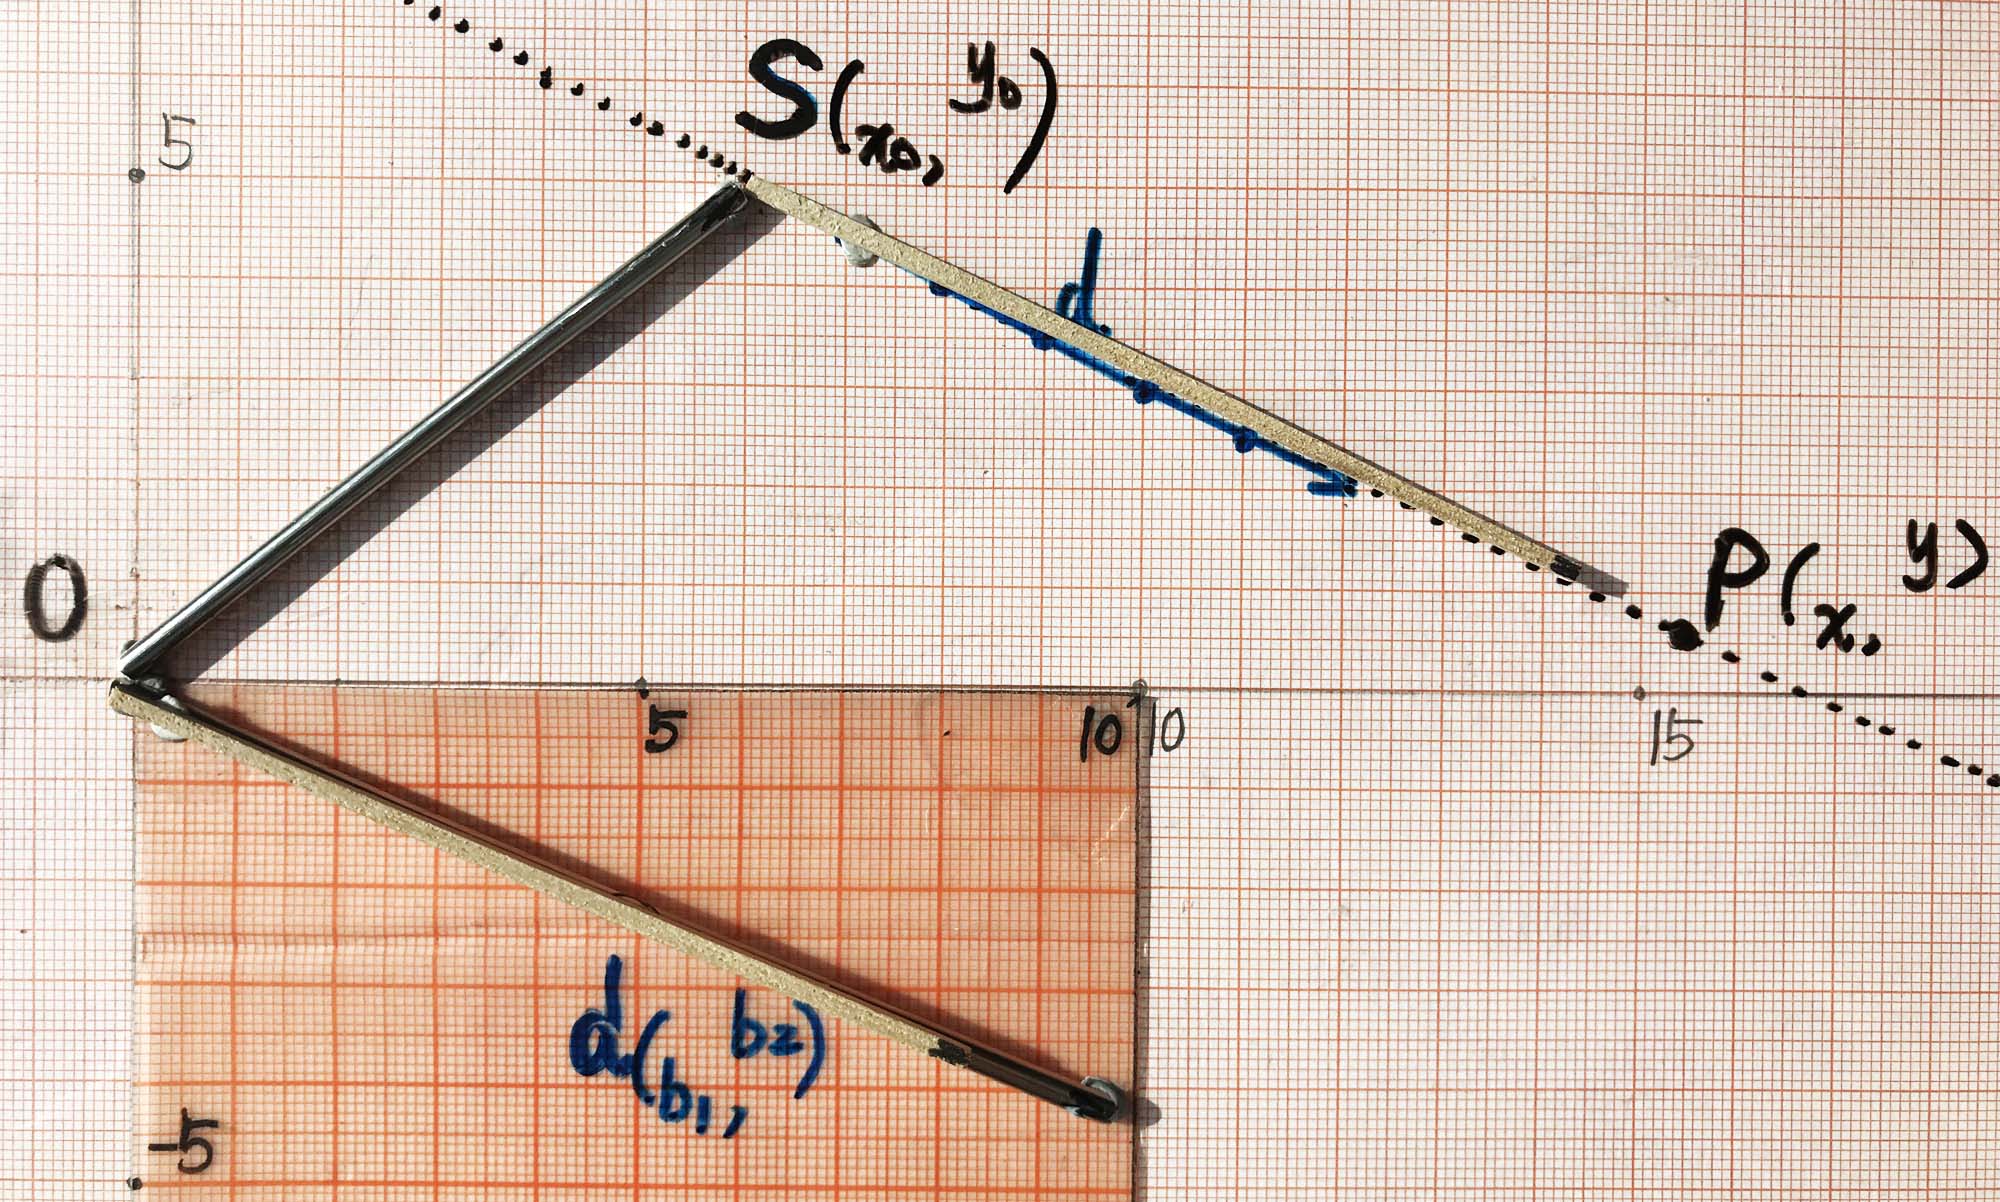 5
S(x₀, y₀)
d
O
P(x, y)
5
10
10
15
d(b₁, b₂)
-5